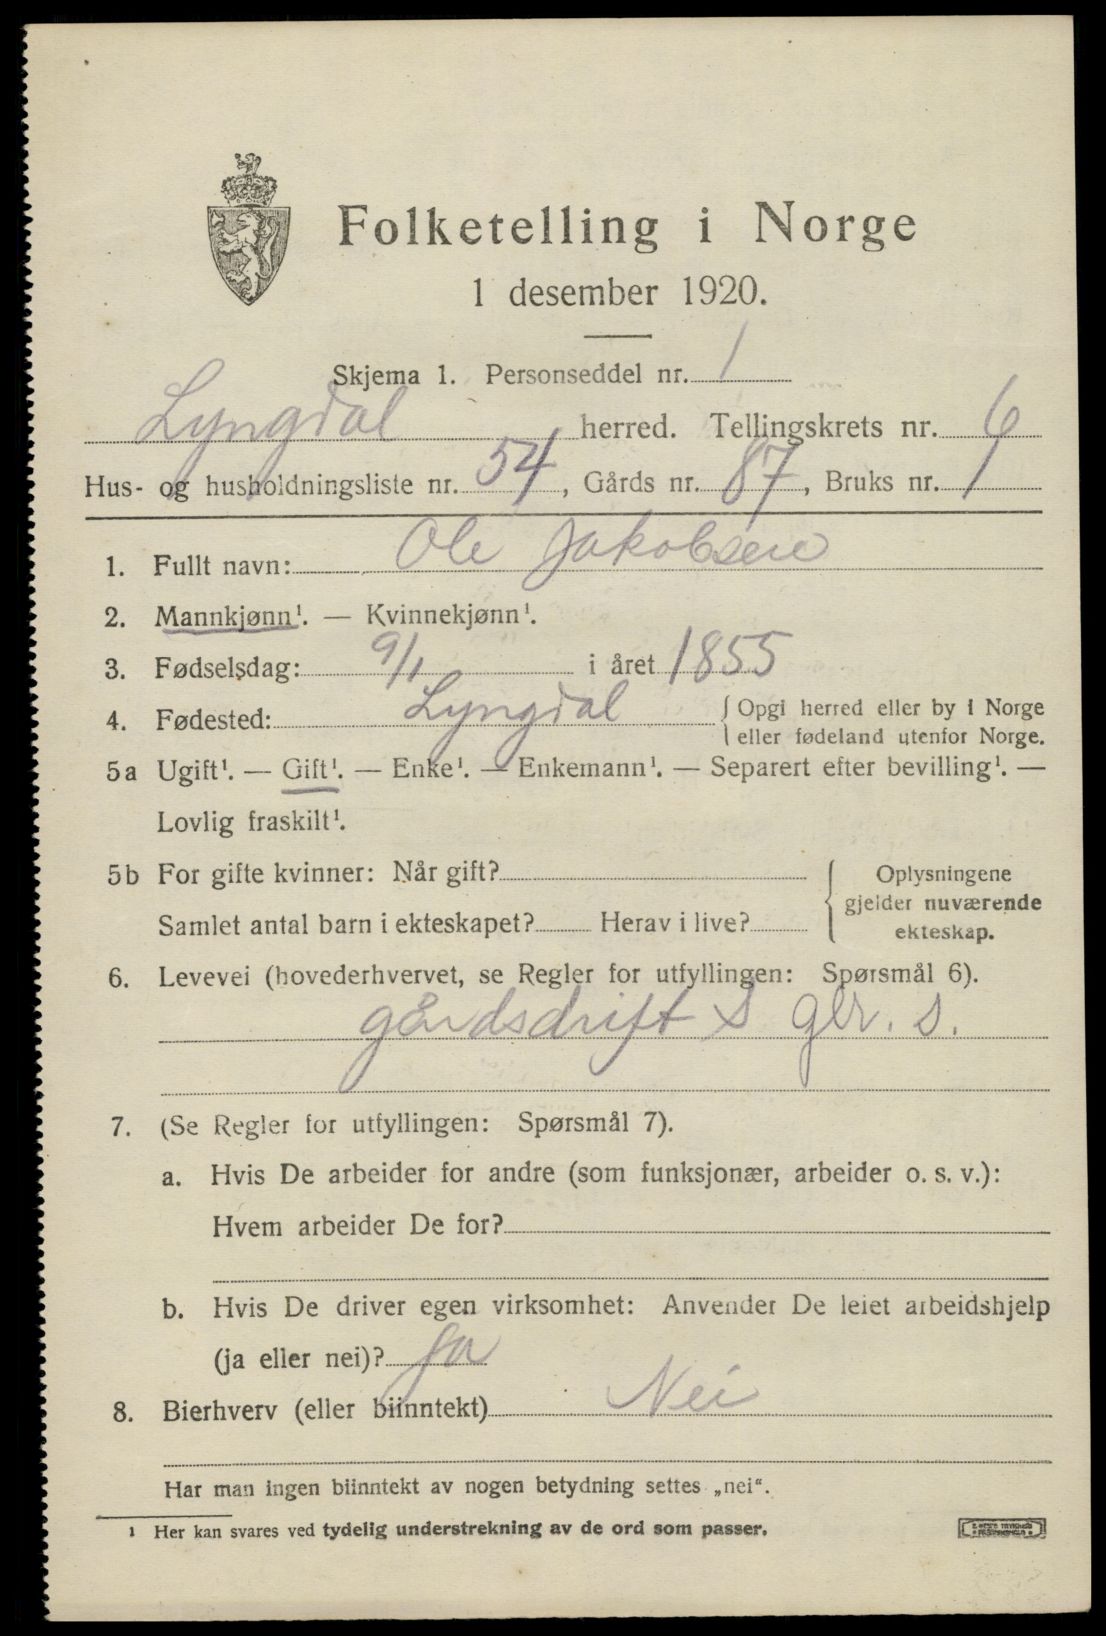 Folketelling i Norge
1 desember 1920.
Skjema 1. Personseddel nr. 1
Lyngdal herred. Tellingskrets nr. 6
Hus- og husholdningsliste nr. 54, Gårds nr. 87, Bruks nr. 1
1. Fullt navn: Ole Jakobsen
2. Mannkjønn¹. — Kvinnekjønn¹.
3. Fødselsdag: 9/1 i året 1855
4. Fødested: Lyngdal { Opgi herred eller by i Norge
eller fødeland utenfor Norge.
5a Ugift¹. — Gift¹. — Enke¹. — Enkemann¹. — Separert efter bevilling¹. —
Lovlig fraskilt¹.
5b For gifte kvinner: Når gift? { Oplysningene
gjelder nuværende
Samlet antal barn i ekteskapet? Herav i live? ekteskap.
6. Levevei (hovederhvervet, se Regler for utfyllingen: Spørsmål 6).
gårdsdrift S gbr. s.
7. (Se Regler for utfyllingen: Spørsmål 7).
a. Hvis De arbeider for andre (som funksjonær, arbeider o. s. v.):
Hvem arbeider De for?
b. Hvis De driver egen virksomhet: Anvender De leiet arbeidshjelp
(ja eller nei)? Ja
8. Bierhverv (eller biinntekt) Nei
Har man ingen biinntekt av nogen betydning settes „nei“.
¹ Her kan svares ved tydelig understrekning av de ord som passer.